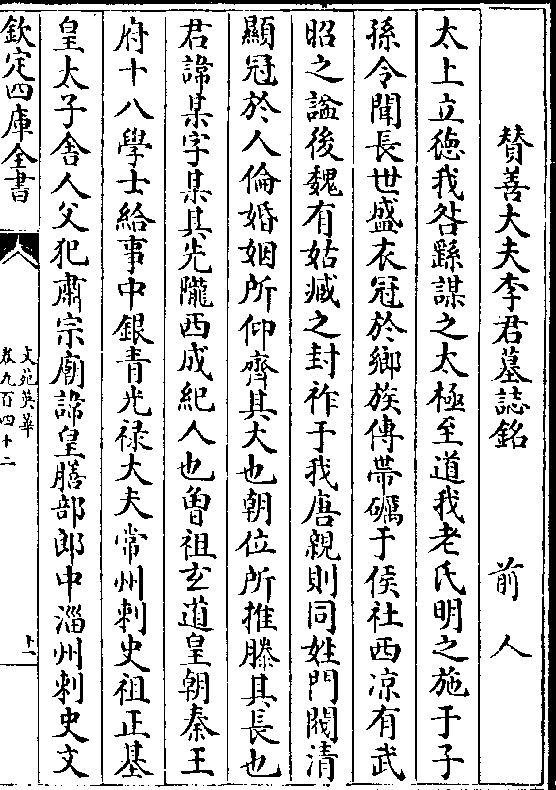 賛善大夫李君墓誌銘　前人
太上立徳我咎繇謀之太極至道我老氏明之施于子
孫令聞長世盛衣冠於鄉族傳帶礪于侯社西凉有武
昭之謚後魏有姑臧之封祚于我唐親則同姓門閥清
顯冠於人倫婚姻所仰齊其大也朝位所推滕其長也
君諱某字某其先隴西成紀人也曾祖玄道皇朝秦王
府十八學士給事中銀青光禄大夫常州刺史祖正基
皇太子舍人父犯肅宗廟諱皇膳部郎中淄州刺史文
欽定四庫全書
文苑英華
卷九百四十二
十一